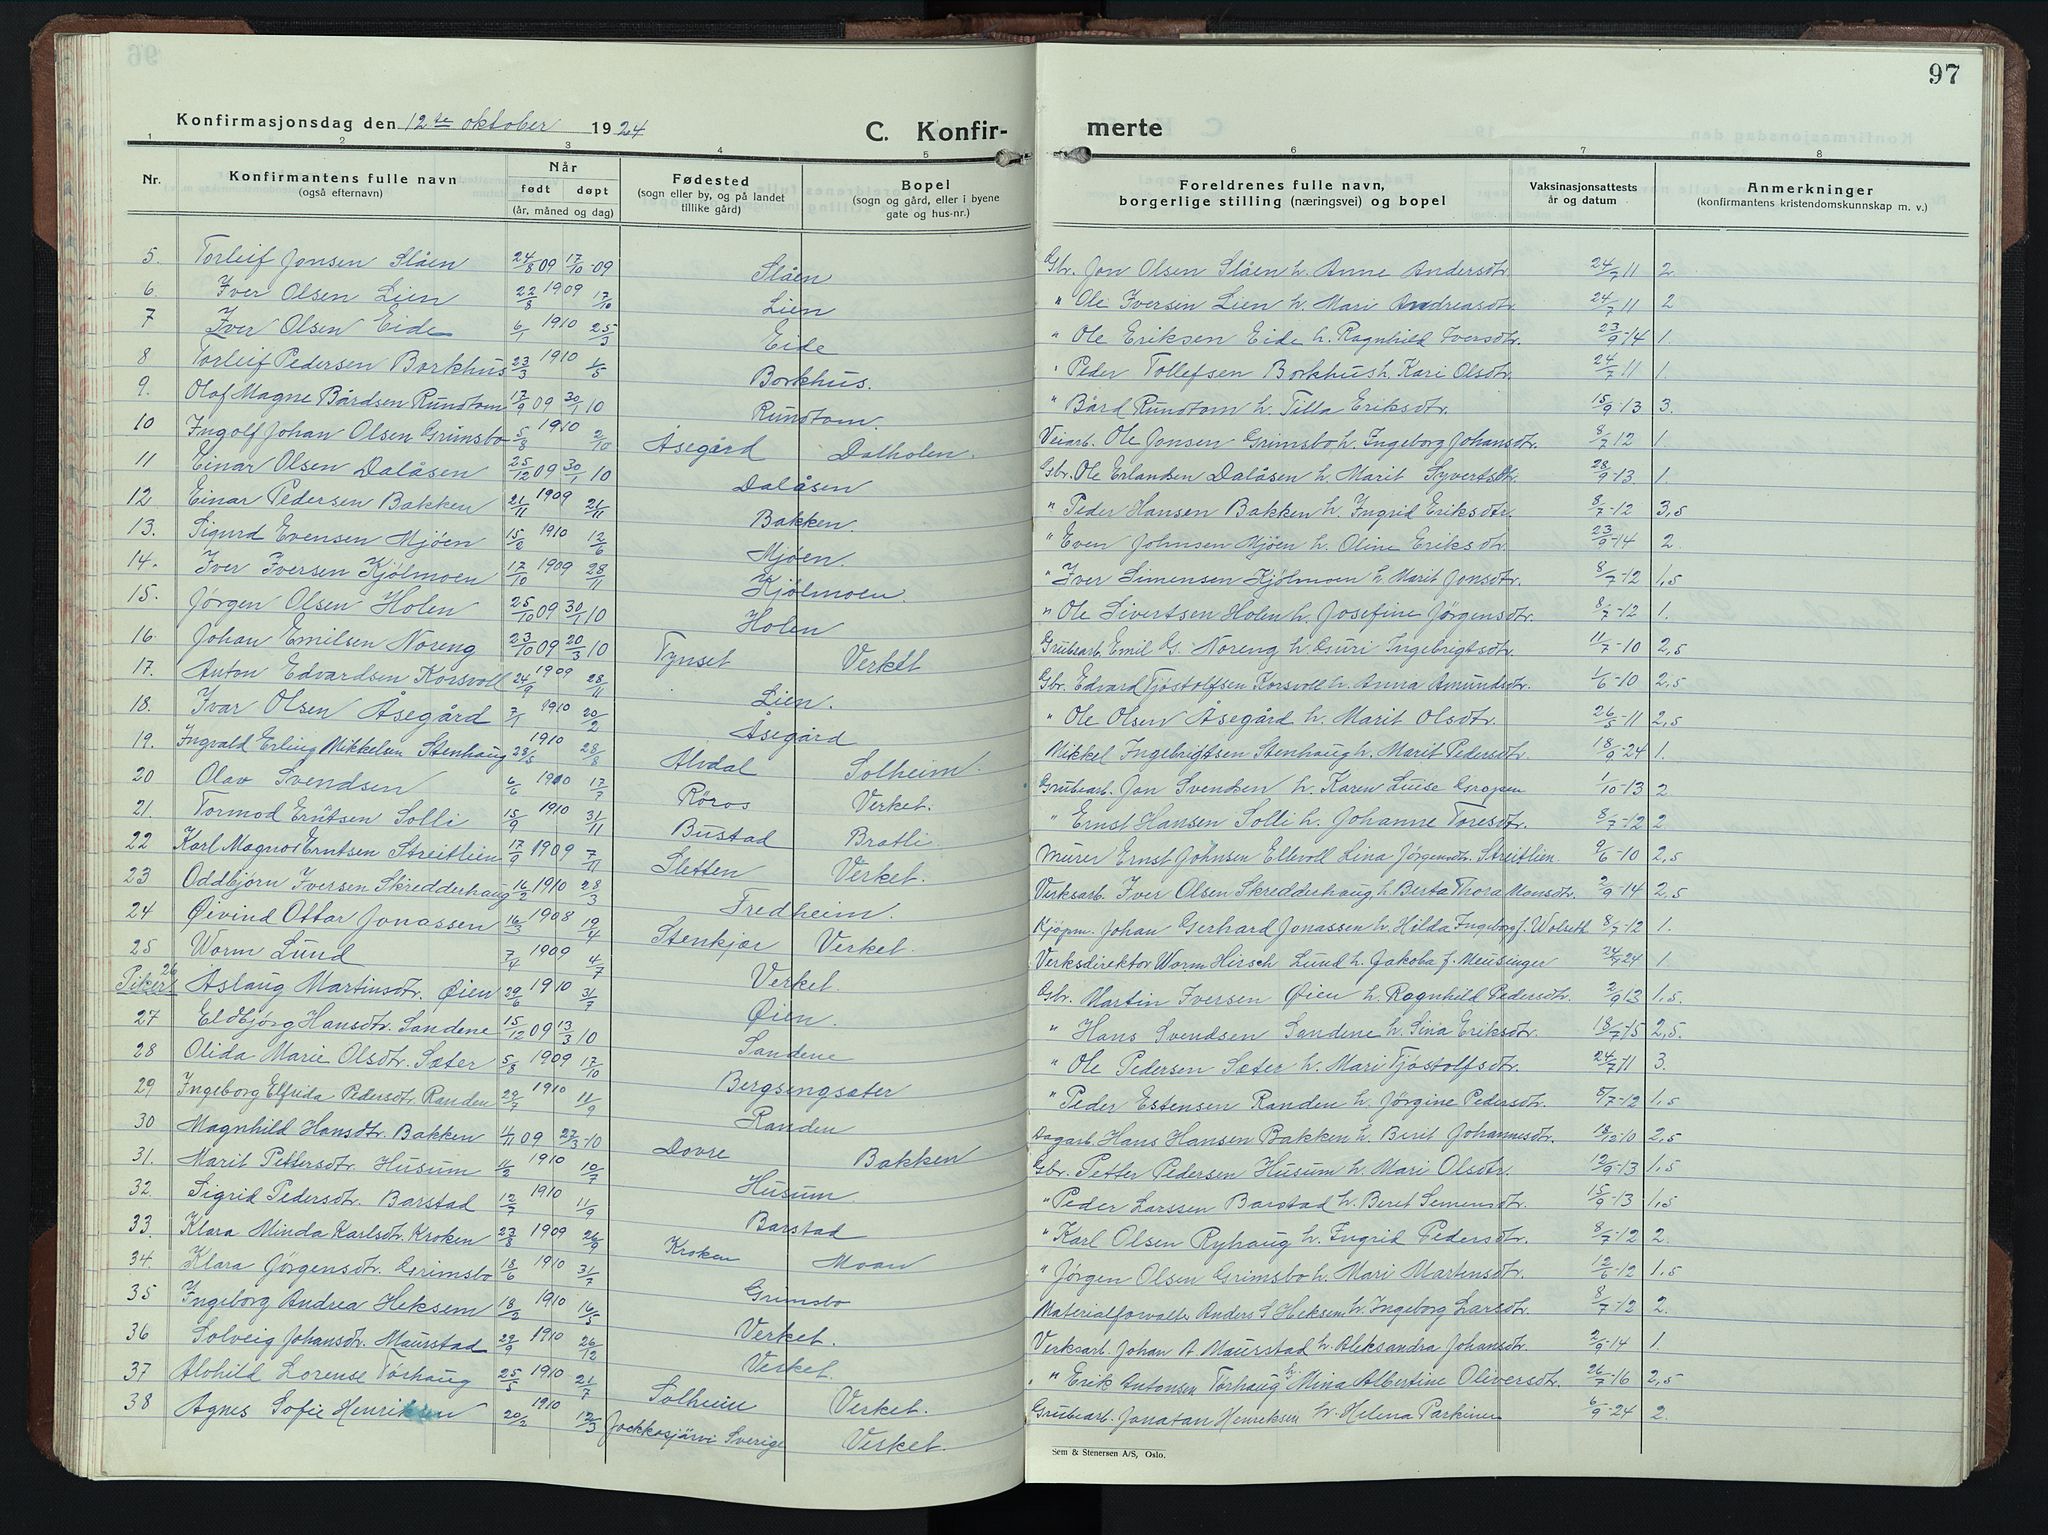 97
Konfirmasjonsdag den 12te oktober 1924
C. Konfir- merte
1 2 3 4 5 6 7 8
Nr. Konfirmantens fulle navn (også efternavn) Når født døpt (år, måned og dag) Fødested (sogn eller by, og på landet tillike gård) Bopel (sogn og gård, eller i byene gate og hus-nr.) Foreldrenes fulle navn, borgerlige stilling (næringsvei) og bopel Vaksinasjonsattests år og datum Anmerkninger (konfirmantens kristendomskunnskap m. v.)
5. Torleif Jonsen Slåen 24/8 09 17/10-09 Slåen Gbr. Jon Olsen Slåen h. Anne Andersdtr. 24/7 11 2
6 Iver Olsen Lien 22/8 1909 17/10 Lien " Ole Iversen Lien h. Mari Andreasdtr. 24/7 11 2
7 Iver Olsen Eide 6/1 1910 25/3 Eide " Ole Eriksen Eide h. Ragnhild Iversdtr. 23/9-14 1.
8 Torleif Pedersen Borkhus 23/3 1910 1/5 Borkhus. " Peder Tollefsen Borkhus h. Kari Olsdtr. 24/7 11 1.
9. Olaf Magne Bårdsen Rundtom 17/9 09 30/1 10 Rundtom. " Bård Rundtom h. Tilla Eriksdtr. 15/9-13 3.
10 Ingolf Johan Olsen Grimsbo 5/8 1910 2/10 Åsegård Dalholen. Veiarb. Ole Jonsen Grimsbo h. Ingeborg Johansdtr. 8/7 12 1.
11 Einar Olsen Dalåsen 25/12 09 30/1 10 Dalåsen Gbr. Ole Erlandsen Dalåsen h. Marit Syvertsdtr. 28/9-13 1.
12 Einar Pedersen Bakken 21/11 1909 21/11 Bakken. " Peder Hansen Bakken h. Ingrid Eriksdtr. 8/7-12 3,5
13. Sigurd Evensen Mjøen 15/2 1910 12/6 Mjøen. " Even Johnsen Mjøen h. Oline Eriksdtr. 23/9-14 2.
14. Iver Iversen Kjølmoen 17/10 1909 28/11 Kjølmoen. " Iver Simensen Kjølmoen h Marit Jonsdtr. 8/7-12 1,5
15. Jørgen Olsen Holen 25/10 09 30/1 10 Holen " Ole Sivertsen Holen h. Josefine Jørgensdtr. 8/7-12 1.
16. Johan Emilsen Noreng 23/10 09 20/3 10 Tynset Verket Grubearb. Emil G. Noreng h. Guri Ingebrigtsdtr. 11/7-10 2,5
17. Anton Edvardsen Korsvoll 24/9 1909 28/11 Lien. Gbr. Edvard Tjøstolfsen Korsvoll h. Anna Amundsdtr. 1/6-10 2,5
18. Ivar Olsen Åsegård 7/1 1910 20/2 Åsegård " Ole Olsen Åsegård h. Marit Olsdtr. 26/5-11 2,5
19. Ingvald Erling Mikkelsen Stenhaug 28/5 1910 28/8 Alvdal Solheim. Mikkel Ingebrigtsen Stenhaug h. Marit Pedersdtr. 18/9-24 1.
20 Olav Svendsen 6/6 1910 17/7 Røros Verket. Grubearb. Jon Svendsen h. Karen Luise Gropen 1/10-13 2
21. Tormod Erntsen Solli 15/9 1910 31/11 Bustad Bratli " Ernst Hansen Solli h. Johanne Toresdtr. 8/7-12 2
22 Karl Magnos Erntsen Streitlien 17/9 1909 7/11 Sletten Verket. Murer Ernst Johnsen Ellevoll Lina Jørgensdtr. Streitlien 9/6-10 2,5
23 Oddbjørn Iversen Skredderhaug 16/2 1910 28/3 Fredheim. Verksarb. Iver Olsen Skredderhaug h. Berta Thora Mansdtr. 2/9-14 2,5
24 Øivind Ottar Jonassen 16/3 1908 19/4 Stenkjær Verket. Kjøpm. Johan Gerhard Jonassen h. Hilda Ingeborg f. Wolseth 8/7-12 1.
25 Worm Lund 7/4 1909 4/7 Verket. Verksdirektør Worm Hirsch Lund h. Jakoba f. Meusinger 24/9 24 1
Piker 26 Åslaug Martinsdtr. Øien 29/6 1910 31/7 Øien. Gbr. Martin Iversen Øien h. Ragnhild Pedersdtr. 2/9 13 1,5.
27 Eldbjørg Hansdtr. Sandene 15/12 09 13/3 10 Sandene " Hans Svendsen Sandene h. Sina Eriksdtr. 18/7-15 2,5.
28 Olida Marie Olsdtr. Sæter 5/8 1909 17/10 Bergsengsæter " Ole Pedersen Sæter h. Mari Tjøstolfsdtr. 24/7 11 3.
29 Ingeborg Elfrida Pedersdtr. Randen 29/7 1910 11/9 Randen " Peder Estensen Randen h. Jørgine Pedersdtr. 5/7-12 1,5
30 Magnhild Hansdtr. Bakken 11/11 09 27/3-10 Dovre Bakken Dagarb. Hans Hansen Bakken h. Berit Johannesdtr. 18/12-10 2,5
31. Marit Pettersdtr. Husum 11/2 1910 10/7 Husum Gbr. Petter Pedersen Husum h. Mari Olsdtr. 12/9-13 1,5
32 Sigrid Pedersdtr. Barstad 12/7 1910 11/9 Barstad " Peder Larssen Barstad h. Beret Simensdtr. 15/9-13 1,5
33 Klara Minda Karlsdtr. Kroken 23/8 1909 26/9 Kroken Moan " Karl Olsen Ryhaug h. Ingrid Pedersdtr. 8/7-12 2.
34. Klara Jørgensdtr. Grimsbo 18/6 1910 31/7 Grimsbo " Jørgen Olsen Grimsbo h. Mari Martinsdtr. 12/6-12 1,5
35 Ingeborg Andrea Heksem 18/2 1910 16/5 Verket. Materialforvalter Anders S Heksem h. Ingeborg Larsdtr. 8/7-12 2.
36 Solveig Johansdtr. Maurstad 29/9 1910 26/12 Verket. Verksarb. Johan A Maurstad h. Aleksandra Johansdtr. 2/9-14 1.
37 Alvhild Lorense Tørhaug 25/5 1910 21/7 Solheim Verket. " Erik Antonsen Tørhaug h. Mina Albertine Oliversdtr. 26/7-16 2,5
38 Agnes Sofie Henriksen 20/2 1910 12/3 Jockkosjärvi Sverige Verket. Grubearb. Jonatan Henriksen h. Helena Parkinen 6/9-24 2.
Sem & Stenersen A/S, Oslo.